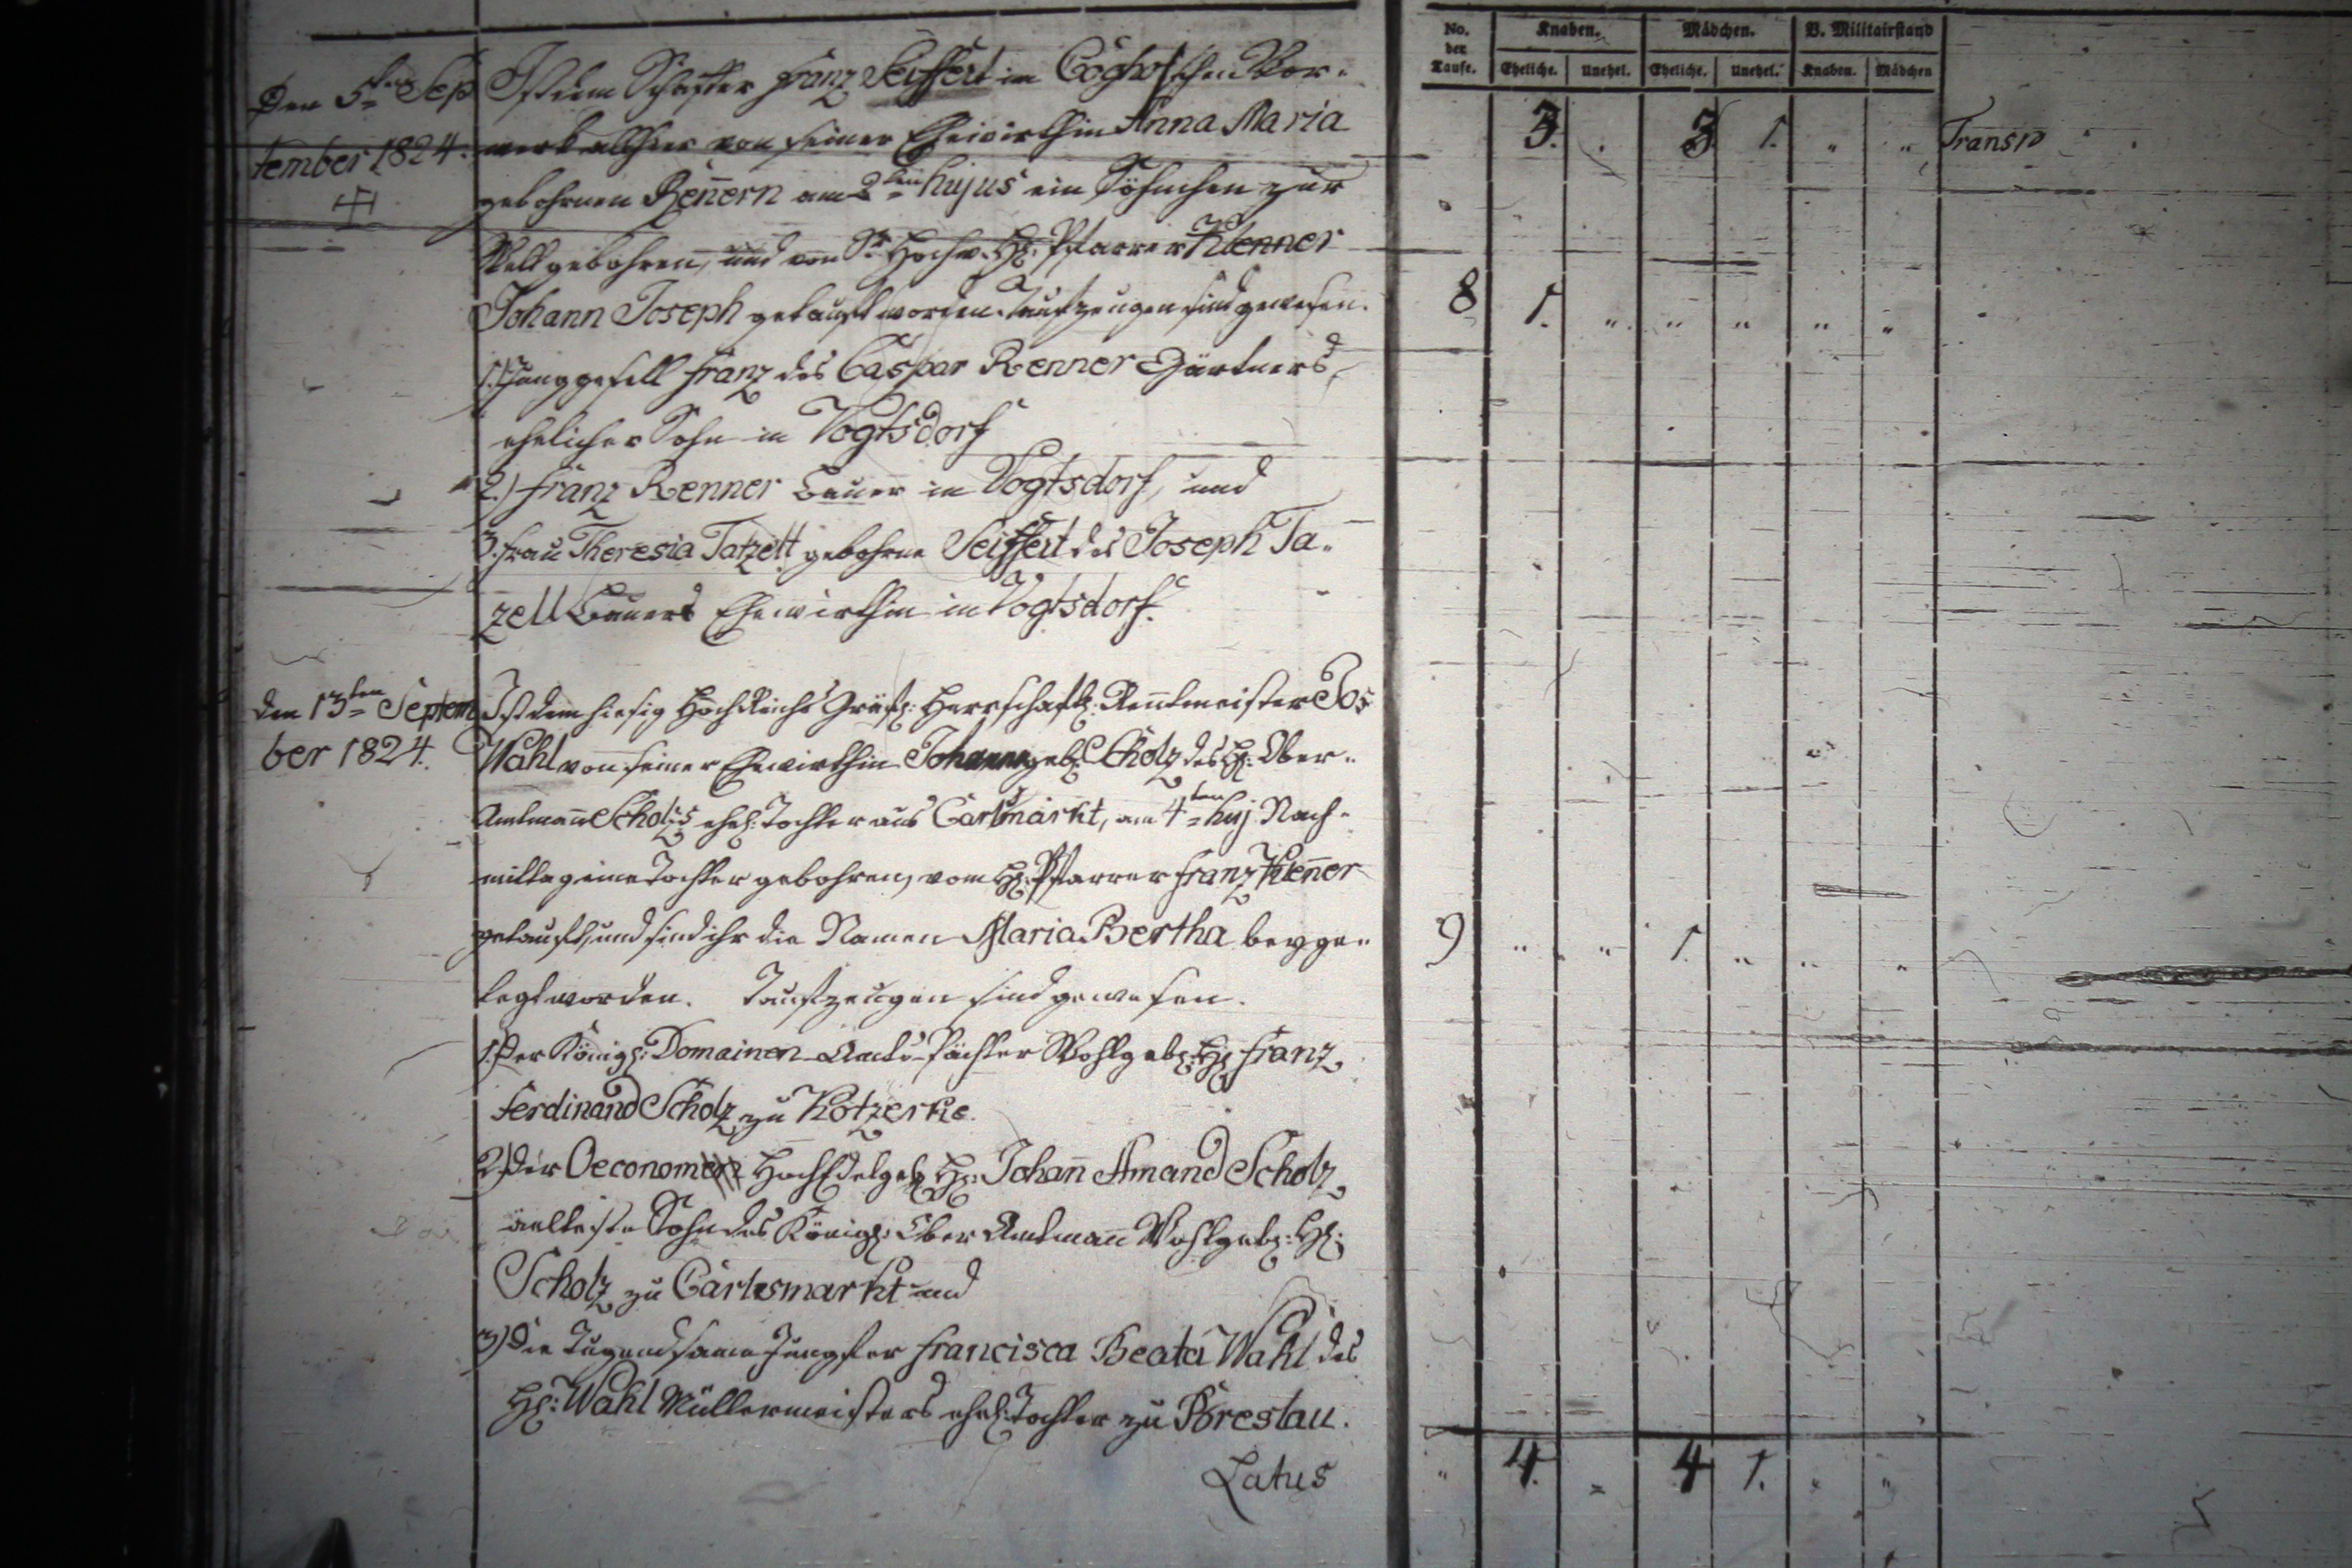 No. der Taufe. Knaben. Mädchen. V. Militairstand
Eheliche. Unehel. Eheliche. Unehel. Knaben. Mädchen
3. . 3 1. " " Transp
Den 5ten Sep
tember 1824.
Ist dem Schaffer Franz Seiffert im schen Vor-
werk allhier von seiner Ehewirthin Anna Maria
gebohrnen Rennern am 2ten hujus ein Söhnchen zur
Welt gebohren, und von Sr Hochw. H: Pfarrer Klenner
Johann Joseph getauft worden. Taufzeugen sind gewesen.
8 1. " " " " "
1.) Junggesell Franz des Caspar Renner Gärtners
ehelicher Sohn in Vogtsdorf
2.) Franz Renner Bauer in Vogtsdorf, und
3. Frau Theresia Tatzelt gebohrne Seiffert des Joseph Ta-
zell Bauers Ehewirthin in Vogtsdorf.
den 13ten Septem
ber 1824.
Ist dem hiesig Hochreichs Gräfl: Herrschaftl: Rentmeister Jos
Wahl von seiner Ehewirthin Johanna geb: Scholz des H: Ober-
Amtmann Scholz ehel: Tochter aus Carlsmarkt, am 4ten huj Nach-
mittag eine Tochter gebohren, vom H: Pfarrer Franz Klenner
getauft, und sind ihr die Namen Maria Bertha beyge-
legt worden. Taufzeugen sind gewesen.
9 " " 1. " " "
1. Der Königl: Domainen Amts-Pächter Wohlgeb: H: Franz
Ferdinand Scholz zu Kotzerke.
2) Der Oeconom Hochedelgeb H: Johann Amand Scholz,
aelteste Sohn des Königl: Ober Amtmann Wohlgeb: H:
Scholz zu Carlsmarkt und
3) Die Tugendsame Jungfer Francisca Beata Wahl des
H: Wahl Müllermeisters ehel: Tochter zu Breslau.
Latus
" 4. " 4 1. " "